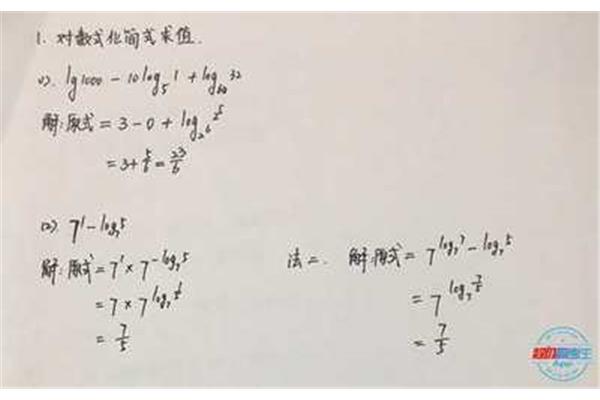 1. 对数式化简或求值.
(1). lg1000 - 10log₅1 + log₆₄32
解:原式 = 3 - 0 + log_{2^6}2^5
= 3 + 5/6 = 23/6
(2). 7^{1-log₇5}
解:原式 = 7^1 × 7^{-log₇5}
= 7 × 7^{log₇1/5}
= 7/5
法二. 解:原式 = 7^{log₇7-log₇5}
= 7^{log₇7/5}
= 7/5